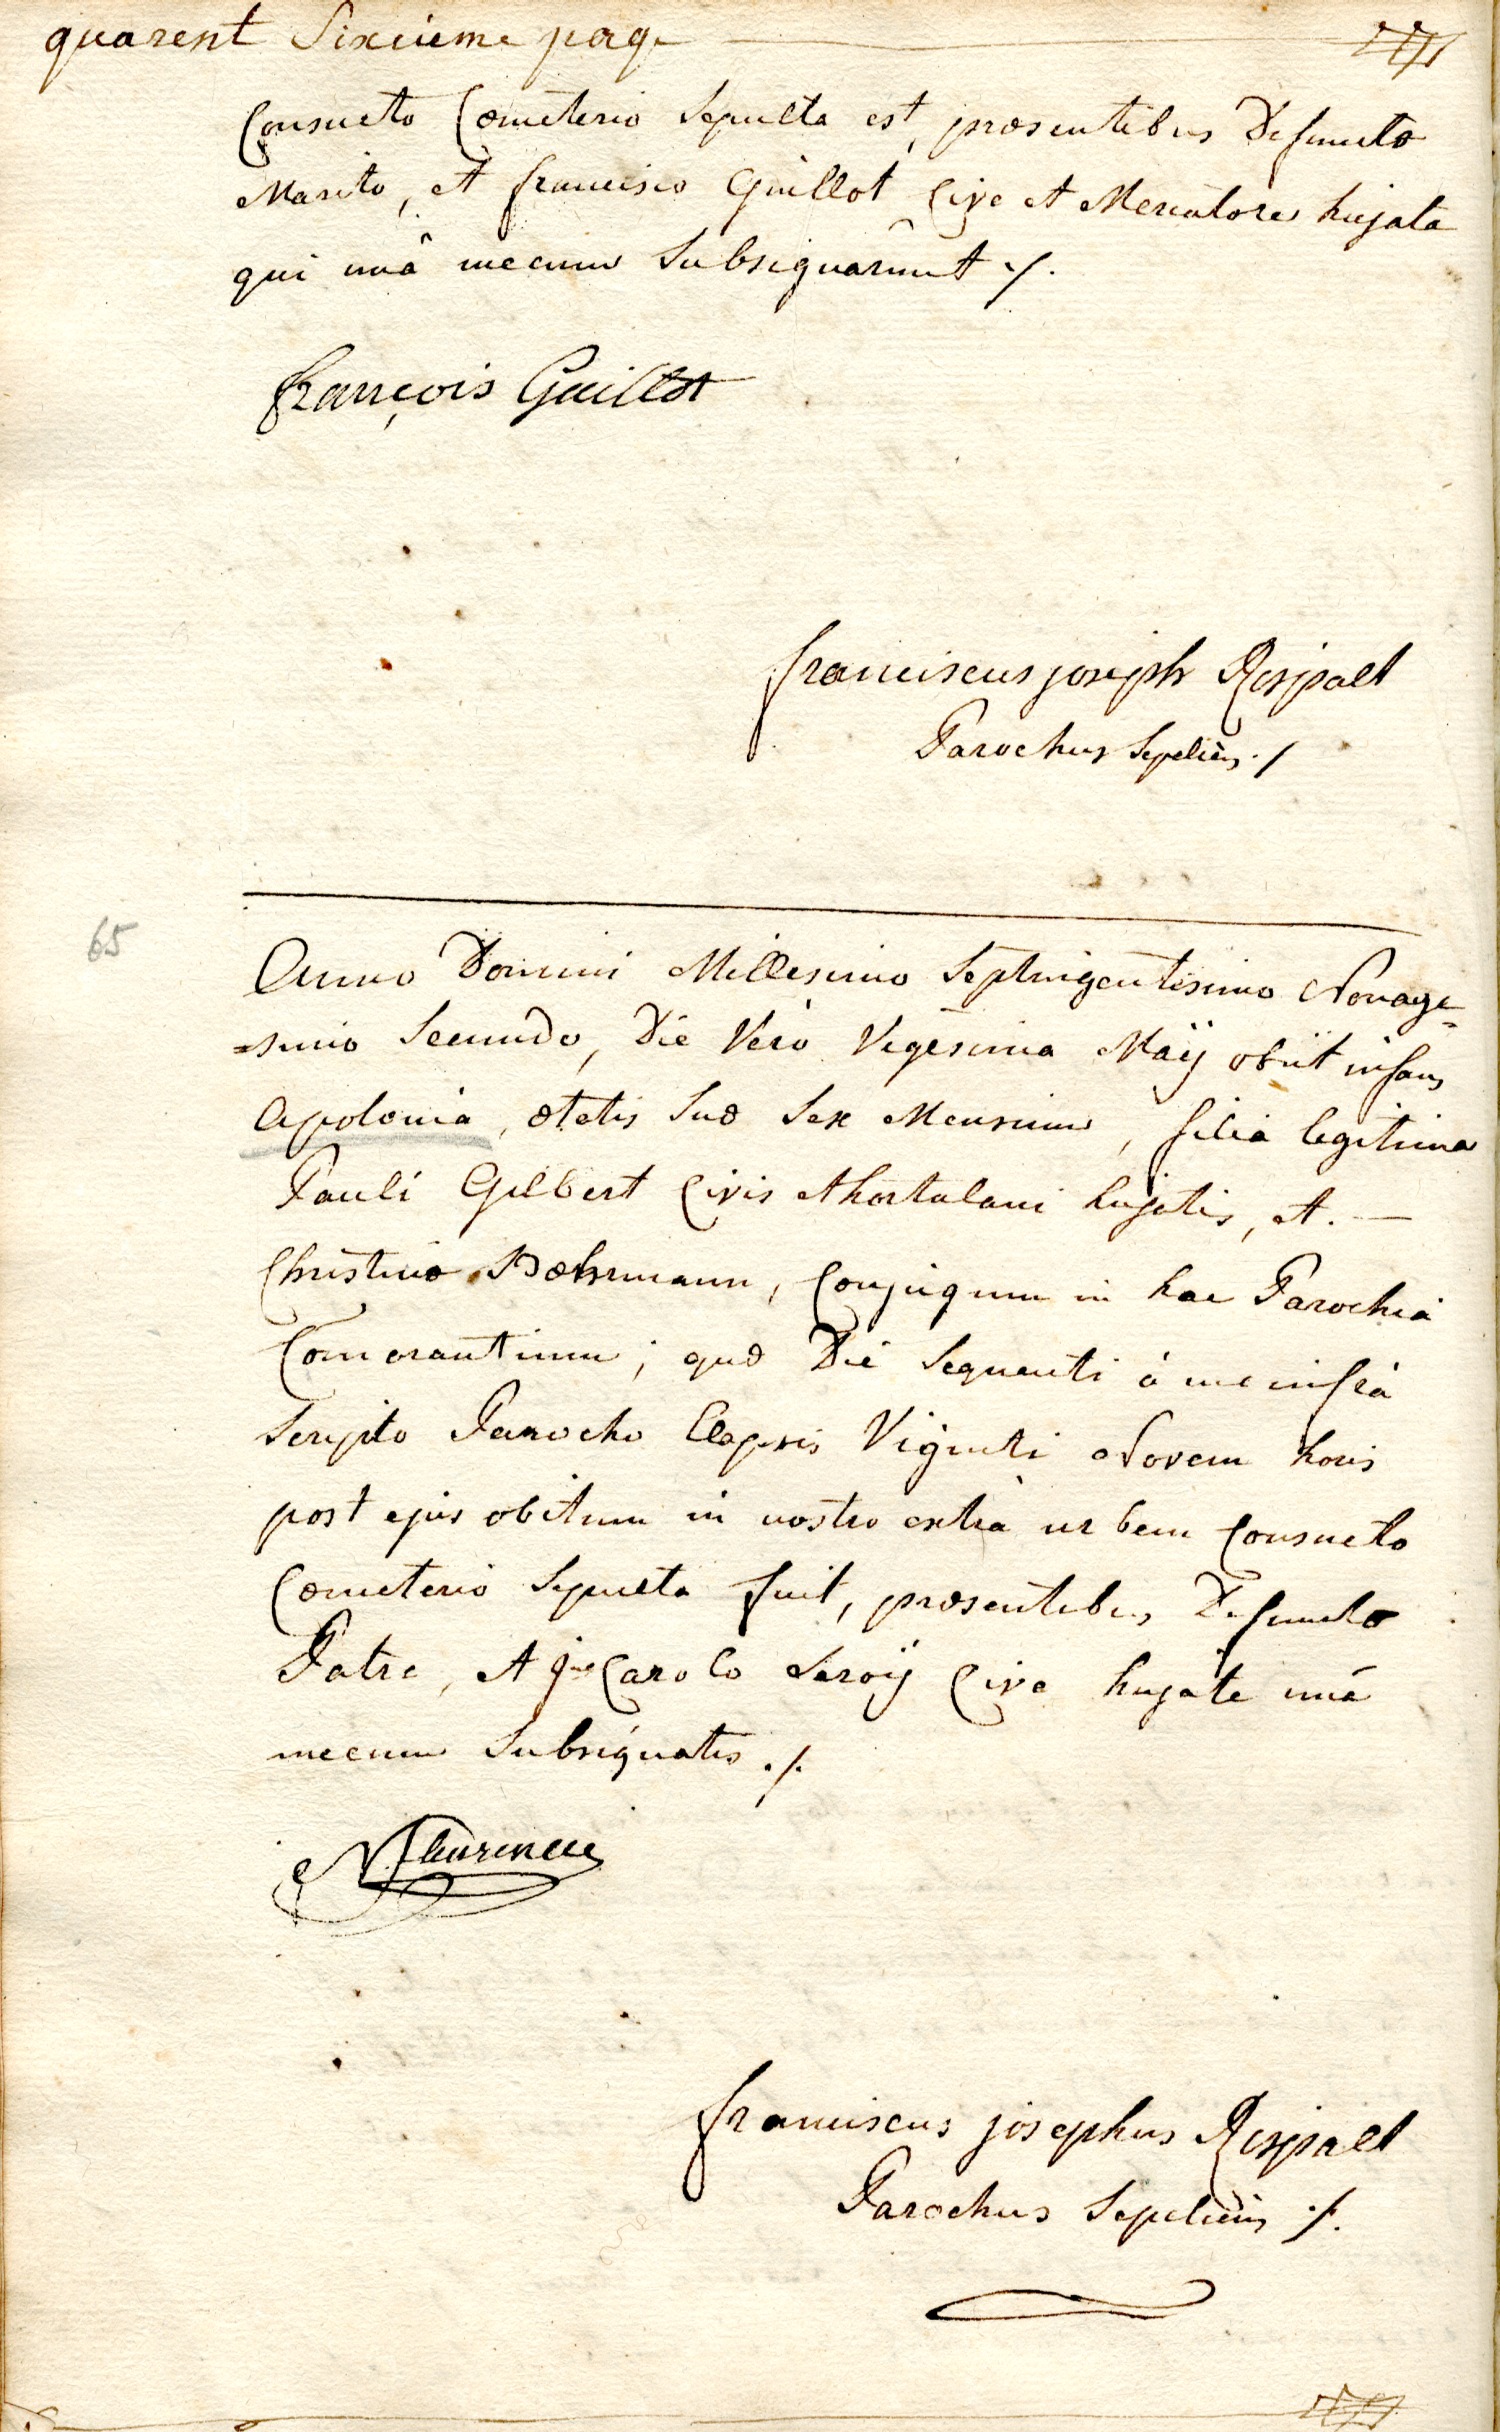 quarent Sixcieme page
Consueto Cœmeterio Sepulta est, præsentibus Defunctæ
Marito, et francisco Guillot Cive et Mercatore hujate
qui unâ mecum Subsignarunt ./.
françois Guillot
franciscus joseph Rospalt
Parochus Sepeliens ./
65
Anno Domini Millesimo Septuigentisimo Nonage=
=simo Secundo, Die Vero Vigesima Maÿ obiit infans
Apolonia, ætatis Suæ Sex Mensium, filia legitima
Pauli Gilbert Civis et hortulani hujatis, et. —
Christinæ Bohrmann, Conjugum in hac Parochiá
Comorantium; quæ Die Sequenti á me infrá
Scripto Parocho Elapsis Viginti Novem horis
post ejus obitum in nostro extrà urbem Consueto
Cœmeterio Sepulta fuit, præsentibus Defunctæ
Patre, et Carolo Leroÿ Cive hujate uná
mecum Subsignatis ./.
franciscus josephus Rospalt
Parochus Sepeliens ./.